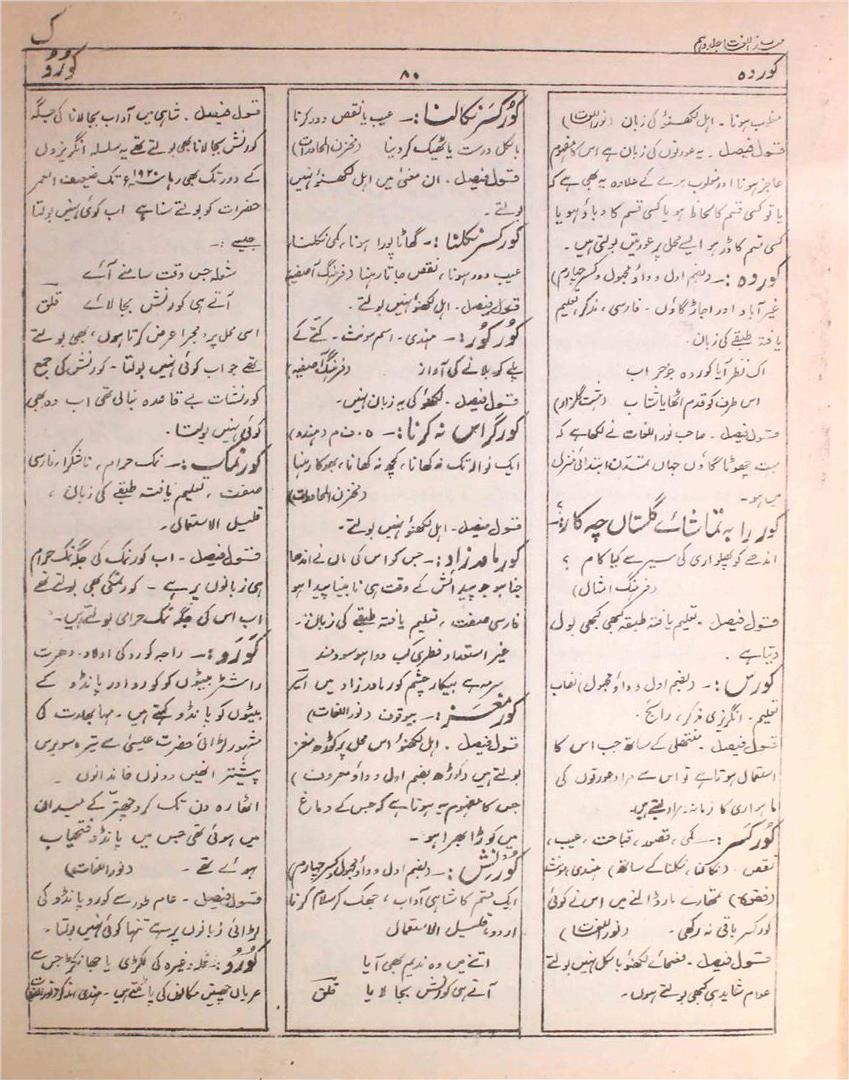 مہذب اللغات جلد دہم
ک
کوردہ
۸۰
کورو
مغلوب ہونا ۔ اہل لکھنؤ کی زبان (نور اللغات)
قول فیصل ۔ یہ عورتوں کی زبان ہے اس کا مفہوم
عاجز ہونا اور مغلوب ہونے کے علاوہ یہ بھی ہے کہ
یا تو کسی قسم کا لحاظ ہو یا کسی قسم کا دباؤ ہو یا
کسی قسم کا ڈر ہو ایسے محل پر عورتیں بولتی ہیں ۔
کوردہ :۔ (بضم اول و واؤ مجہول و کسر چہارم)
غیر آباد اور اجاڑ گاؤں ۔ فارسی ، مذکر، تعلیم
یافتہ طبقے کی زبان ۔
اک نظر آیا کوردہ جو خراب
اس طرف کو قدم اٹھایا شتاب (ہشت گلزار)
قول فیصل ۔ صاحب نور اللغات نے لکھا ہے کہ
بہت چھوٹا گاؤں جہاں تمدن ابتدائی منزل
میں ہو ۔
کور را بہ تماشائے گلستاں چہ کار؟ :۔
اندھے کو پھلواری کی سیر سے کیا کام ؟
(فرہنگ امثال)
قول فیصل ۔ تعلیم یافتہ طبقہ کبھی کبھی بول
دیتا ہے ۔
کورس :۔ (بضم اول و واؤ مجہول) نصاب
تعلیم ۔ انگریزی مذکر ، رائج ۔
قول فیصل ۔ منتھلی کے ساتھ جب اس کا
استعمال ہوتا ہے تو اس سے مراد عورتوں کی
ماہواری کا زمانہ مراد لیتے ہیں
کور کسر :۔ کمی ، قصور ، قباحت ، عیب ،
نقص ۔ (نکالنا ، نکلنا کے ساتھ) ہندی ، مونث
(فقرہ) تمھارے مار ڈالنے میں اس نے کوئی
کور کسر باقی نہ رکھی ۔ (نور اللغات)
قول فیصل ۔ فصحائے لکھنؤ بالکل نہیں بولتے
عوام شاید ہی کبھی بولتے ہوں ۔
کور کسر نکالنا :۔ عیب یا نقص دور کرنا
بالکل درست یا ٹھیک کر دینا (مخزن المحاورات)
قول فیصل ۔ ان معنی میں اہل لکھنؤ نہیں
بولتے ۔
کور کسر نکلنا :۔ گھاٹا پورا ہونا ، کمی نکلنا ،
عیب دور ہونا ، نقص جاتا رہنا (فرہنگ آصفیہ)
قول فیصل ۔ اہل لکھنؤ نہیں بولتے ۔
کور کور :۔ ہندی ۔ اسم مونث ۔ کتے کے
پلے کو بلانے کی آواز (فرہنگ آصفیہ)
قول فیصل ۔ لکھنؤ کی یہ زبان نہیں ۔
کور گراس نہ کرنا :۔ ہ ۔ (ہندو)
ایک نوالہ تک نہ کھانا ، کچھ نہ کھانا ، بھوکا رہنا
(مخزن المحاورات)
قول فیصل ۔ اہل لکھنؤ نہیں بولتے ۔
کور مادر زاد :۔ جس کو اس کی ماں نے اندھا
جنا ہو جو پیدائش کے وقت ہی نابینا پیدا ہو
فارسی صفت ، تعلیم یافتہ طبقے کی زبان ۔
غیر استعداد فطری کب دوا ہو سودمند
سرمہ ہے بیکار چشم کور مادر زاد میں
کور مغز :۔ بیوقوف (نور اللغات)
قول فیصل ۔ اہل لکھنؤ اس محل پر کوڑھ مغز
بولتے ہیں (کوڑھ بضم اول و واؤ معروف)
جس کا مفہوم یہ ہوتا ہے کہ جس کے دماغ
میں کوڑا بھرا ہو ۔
کورنش :۔ (بضم اول و واؤ مجہول و کسر چہارم)
ایک قسم کا شاہی آداب ، جھک کر سلام کرنا
اردو ، قلیل الاستعمال
اتنے میں وہ ندیم بھی آیا
آتے ہی کورنش بجا لایا قلق
قول فیصل ۔ شاہی میں آداب بجالانا کی جگہ
کورنش بجالانا بھی بولتے تھے یہ سلسلہ انگریزوں
کے دور تک بھی رہا ۱۹۲۰ء تک ضعیف العمر
حضرات کو بولتے سنا ہے اب کوئی نہیں بولتا
جیسے :۔
شعلہ جس وقت سامنے آئے
آتے ہی کورنش بجا لائے قلق
اسی محل پر، مجرا عرض کرتا ہوں ، بھی بولتے
تھے جو اب کوئی نہیں بولتا ۔ کورنش کی جمع
کورنشات بے قاعدہ بنالی تھی اب وہ بھی
کوئی نہیں بولتا ۔
کور نمک :۔ نمک حرام ، ناشکرا ، فارسی
صفت ، تعلیم یافتہ طبقے کی زبان ،
قلیل الاستعمال ۔
قول فیصل ۔ اب کور نمک کی جگہ نمک حرام
ہی زبانوں پر ہے ۔ کورنمکی بھی بولتے تھے
اب اس کی جگہ نمک حرامی بولتے ہیں ۔
کورو :۔ راجہ کورو کی اولاد ۔ دھرت
راشٹر بیٹوں کو کورو اور پانڈو کے
بیٹوں کو پانڈو کہتے ہیں ۔ مہابھارت کی
مشہور لڑائی حضرت عیسیٰ سے تیرہ سو برس
پیشتر انھیں دونوں خاندانوں ۔
اٹھارہ دن تک کروچھتر کے میدان
میں ہوئی تھی جس میں پانڈو فتحیاب
ہوئے تھے ۔ (نور اللغات)
قول فیصل ۔ عام طور سے کورو پانڈو کی
لڑائی زبانوں پر ہے تنہا کوئی نہیں بولتا ۔
کورو : وغیرہ کی لکڑی یا جھانکڑ جس سے
عریاں چھتیں مکانوں کی پاٹتے ہیں ۔ ہندی مذکر (نور اللغات)